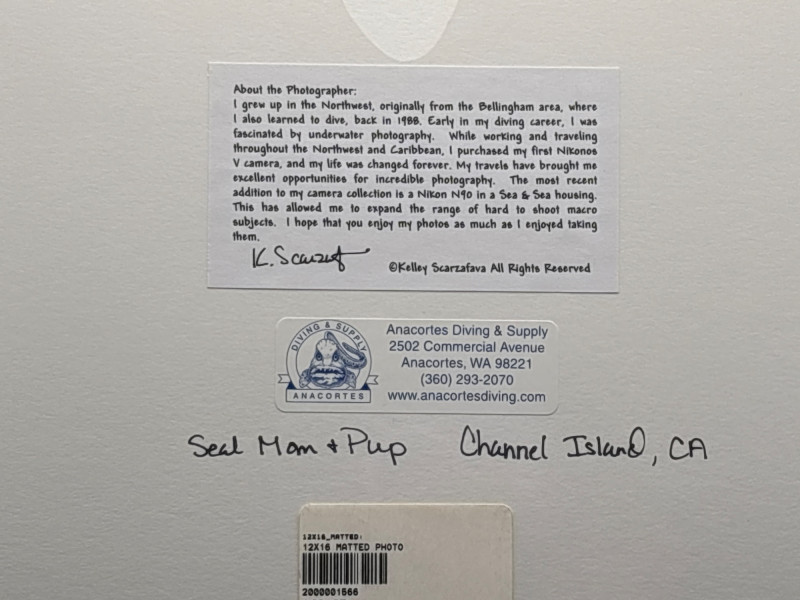 About the Photographer:
I grew up in the Northwest, originally from the Bellingham area, where
I also learned to dive, back in 1988. Early in my diving career, I was
fascinated by underwater photography. While working and traveling
throughout the Northwest and Caribbean, I purchased my first Nikonos
V camera, and my life was changed forever. My travels have brought me
excellent opportunities for incredible photography. The most recent
addition to my camera collection is a Nikon N90 in a Sea & Sea housing.
This has allowed me to expand the range of hard to shoot macro
subjects. I hope that you enjoy my photos as much as I enjoyed taking
them.
K. Scarzaf
©Kelley Scarzafava All Rights Reserved
DIVING & SUPPLY
ANACORTES
Anacortes Diving & Supply
2502 Commercial Avenue
Anacortes, WA 98221
(360) 293-2070
www.anacortesdiving.com
Seal Mom + Pup Channel Island, CA
12X16_MATTED:
12X16 MATTED PHOTO
2000001566